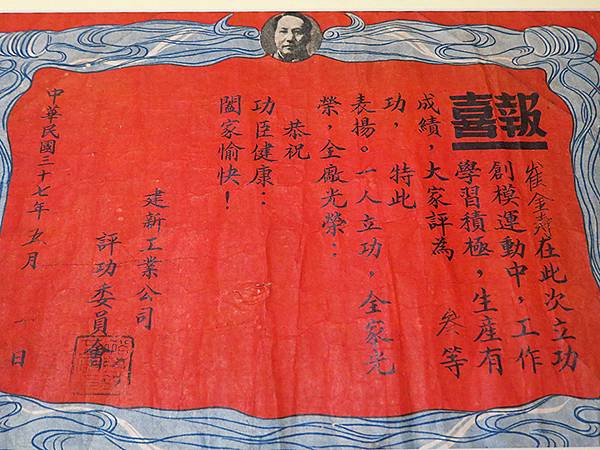 喜報
崔金壽在此次立功
創模運動中,工作
學習積極,生産有
成績,大家評為 叁 等
功, 特此
表揚。一人立功,全家光
榮,全廠光榮:
恭祝
功臣健康:
闔家愉快!
建新工業公司
評功委員會
中華民國三十七年 五月 一日